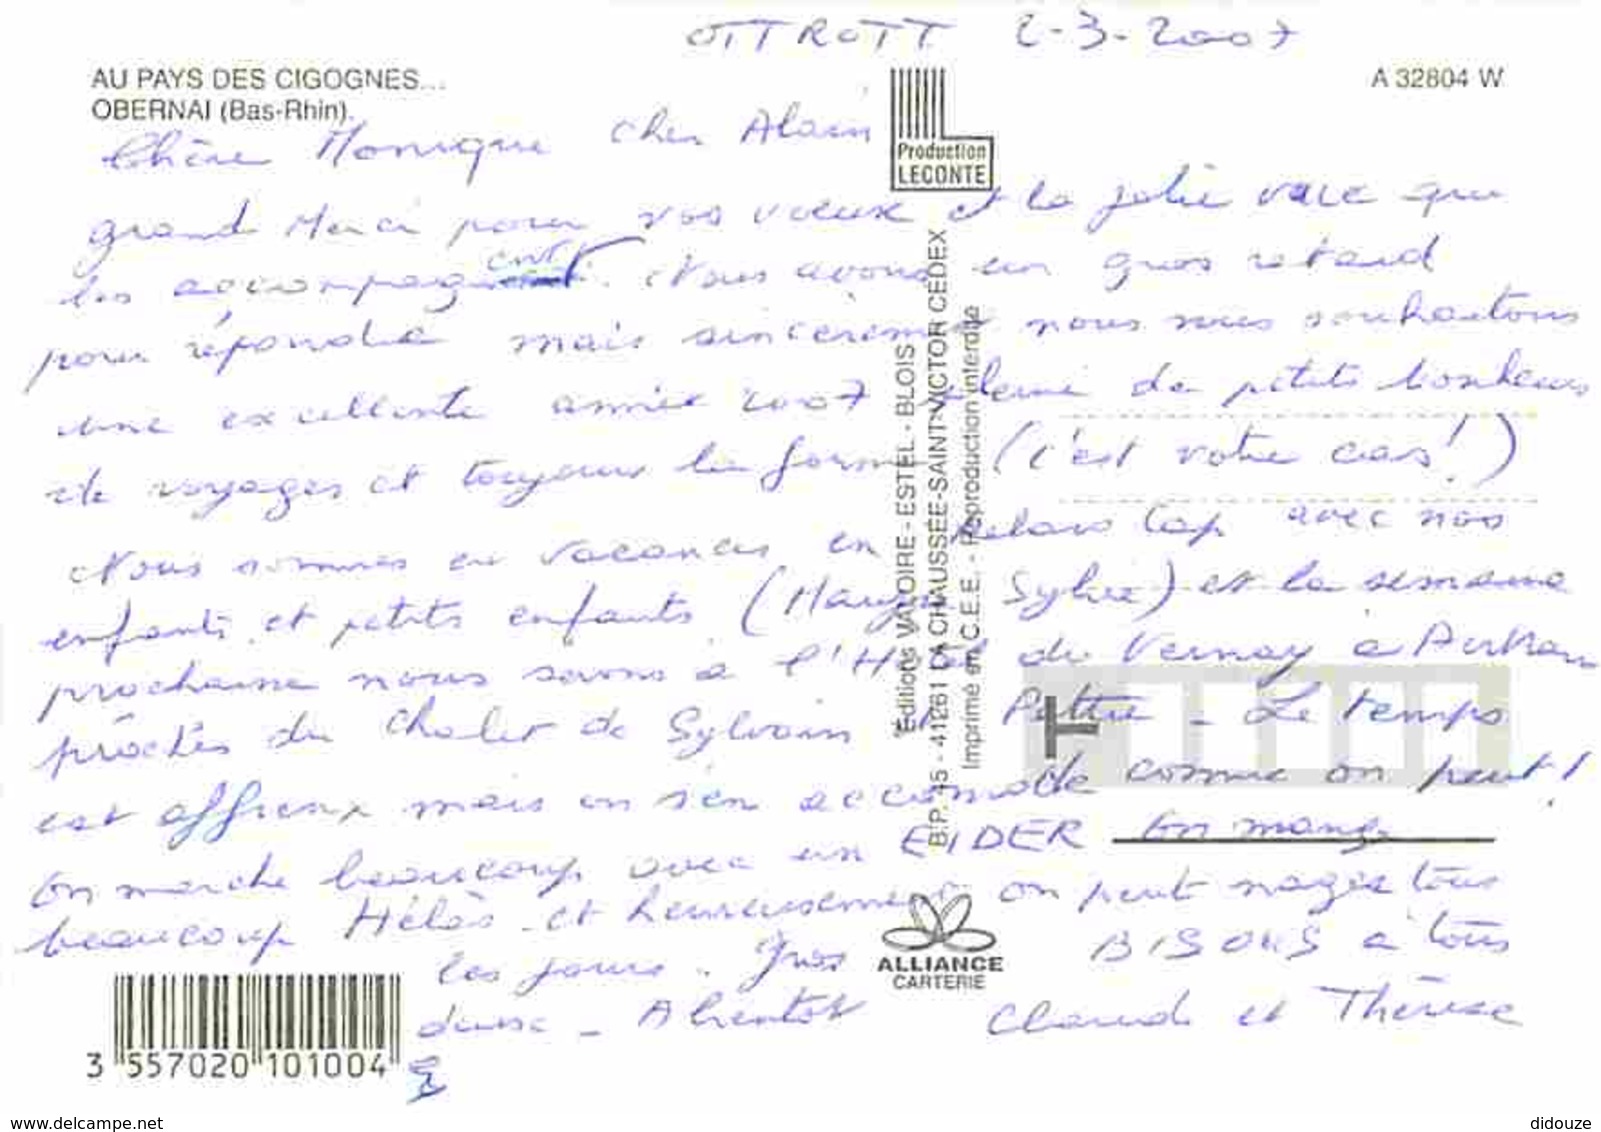 OTTROTT 2-3-2007
AU PAYS DES CIGOGNES...
OBERNAI (Bas-Rhin).
A 32804 W
Production
LECONTE
Chère Monique cher Alain
grand Merci pour vos voeux et la jolie vue qui
les accompagnent. Nous avons un gros retard
pour répondre mais nous nous souhaitons
une excellente année 2007 pleine de petits bonheurs
de voyages et toujours la forme (c'est votre cas!)
Nous sommes en vacances en Relais Cap avec nos
enfants et petits enfants (Sylvie) et la semaine
prochaine nous serons à l'Hotel du Vernay à Autrans
près du chalet de Sylvain et - Le temps
est affreux mais on s'en accomode comme on peut!
On marche beaucoup avec un EIDER on mange
beaucoup Hélas et heureusement on peut nager tous
les jours. Gros BISOUS à tous
deux - A bientôt Claude et Thérèse
Editions VALOIRE-ESTEL - BLOIS
B.P. 15 - 41261 LA CHAUSSÉE-SAINT-VICTOR CEDEX
Imprimé en C.E.E. - Reproduction interdite
ALLIANCE
CARTERIE
3 557020 101004
www.delcampe.net
didouze